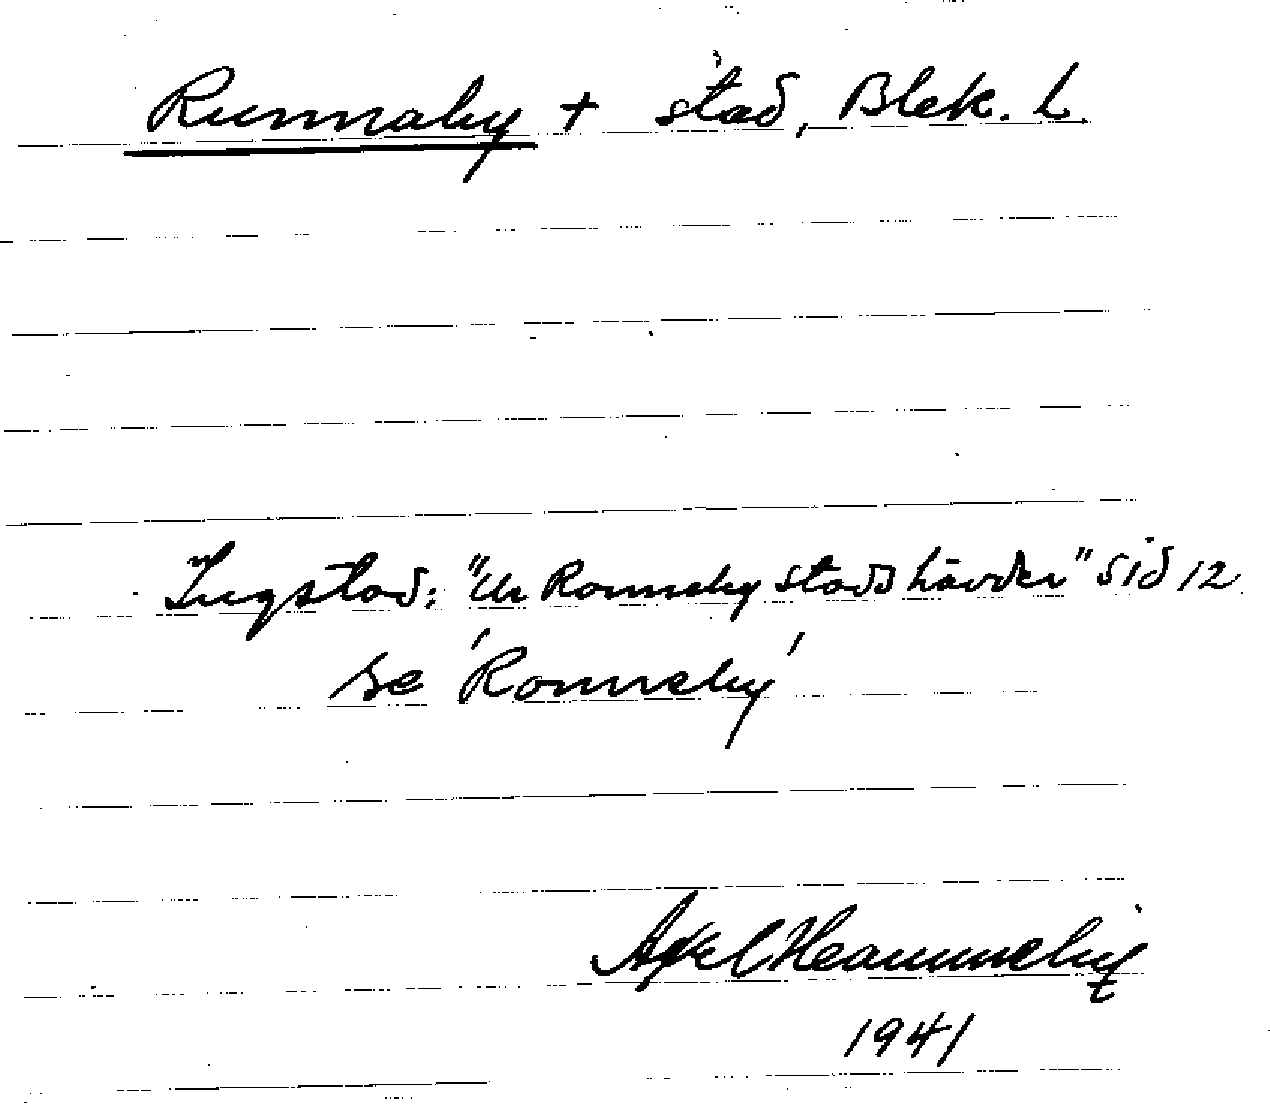 Runnaby + stad, Blek. l.
Ingstad: "Ur Ronneby stads hävder" sid 12
se 'Ronneby'
Axel
1941